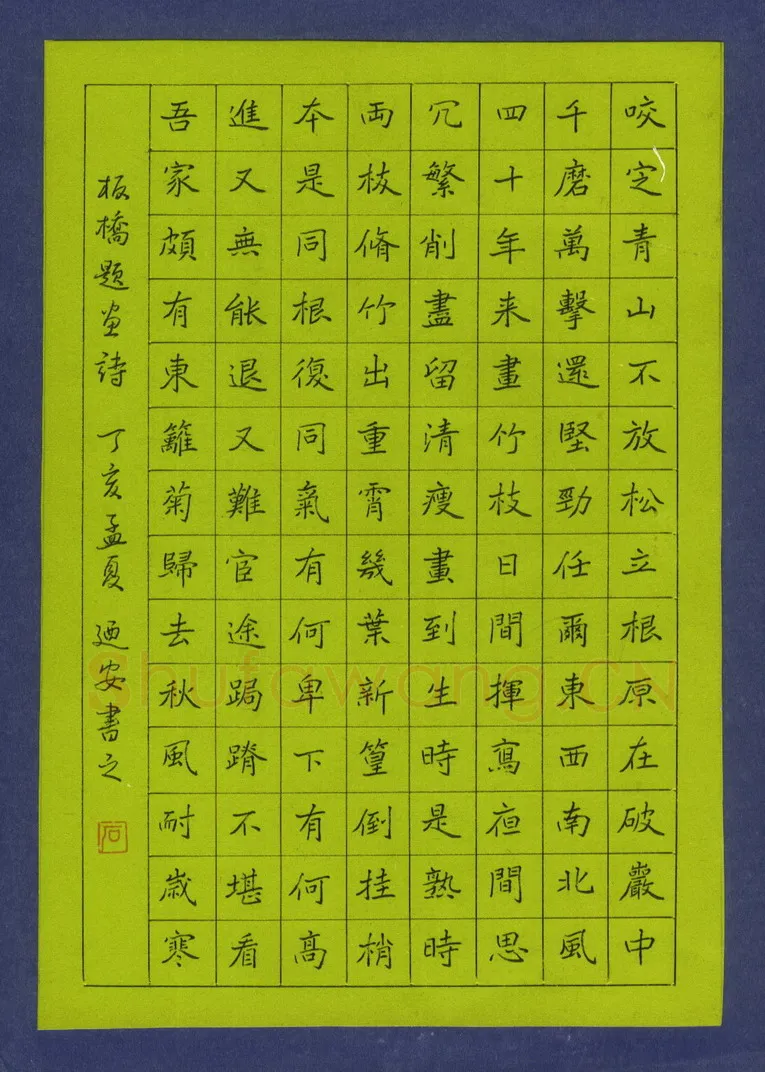 咬定青山不放松立根原在破巖中
千磨萬擊還堅勁任爾東西南北風
四十年来畫竹枝日間揮寫夜間思
冗繁削盡留清瘦畫到生時是熟時
兩枝脩竹出重霄幾葉新篁倒挂梢
本是同根復同氣有何卑下有何高
進又無能退又難宦途跼蹐不堪看
吾家頗有東籬菊歸去秋風耐歲寒
板橋題畫詩 丁亥孟夏 廼安書之
石
Shufawang.CN